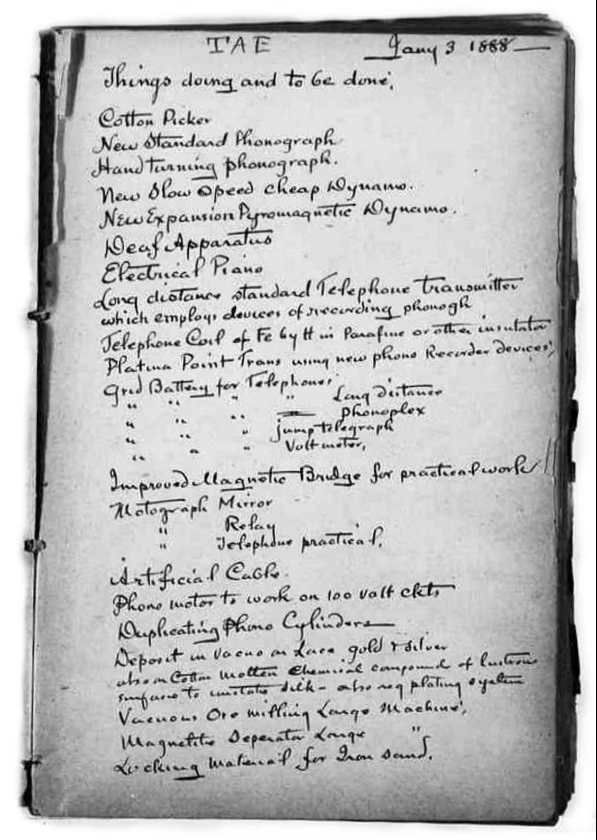 TAE Jany 3 1888
Things doing and to be done.
Cotton Picker
New Standard Phonograph
Hand turning phonograph.
New Slow Speed cheap Dynamo.
New Expansion Pyromagnetic Dynamo.
Deaf Apparatus
Electrical Piano
Long distance standard Telephone transmitter
which employs devices of recording phonogh
Telephone Coil of Fe by H in Parafine or other insulator
Platina Point Trans using new phono Recorder devices,
Grid Battery for Telephones.
" " " Long distance
" " " Phonoplex
" " " jump telegraph
" " " Voltmeter,
Improved Magnetic Bridge for practical work
Motograph Mirror
" Relay
" Telephone practical,
Artificial Cable.
Phono motor to work on 100 volt ckts
Duplicating Phono Cylinders
Deposit in vacuo on Lace gold & silver
also on Cotton molten chemical compound of lustrous
surface to imitate silk - also reg plating system
Vacuous Ore milling Large Machine,
Magnetite Seperator Large "
Locking material for Iron sand.